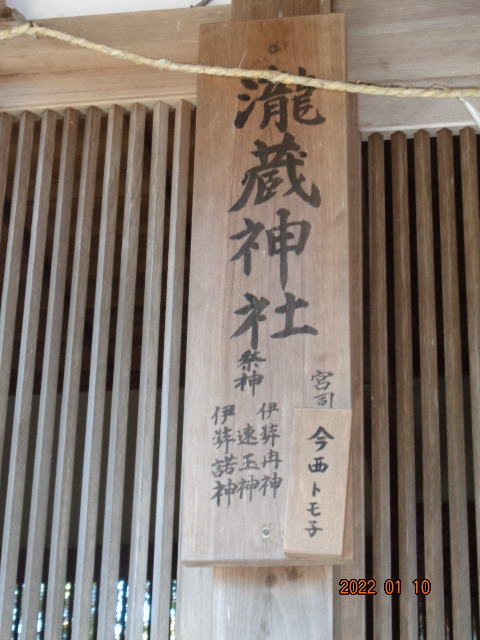 瀧蔵神社
祭神
伊弉冉神
速玉神
伊弉諾神
宮司
今西トモ子
2022 01 10